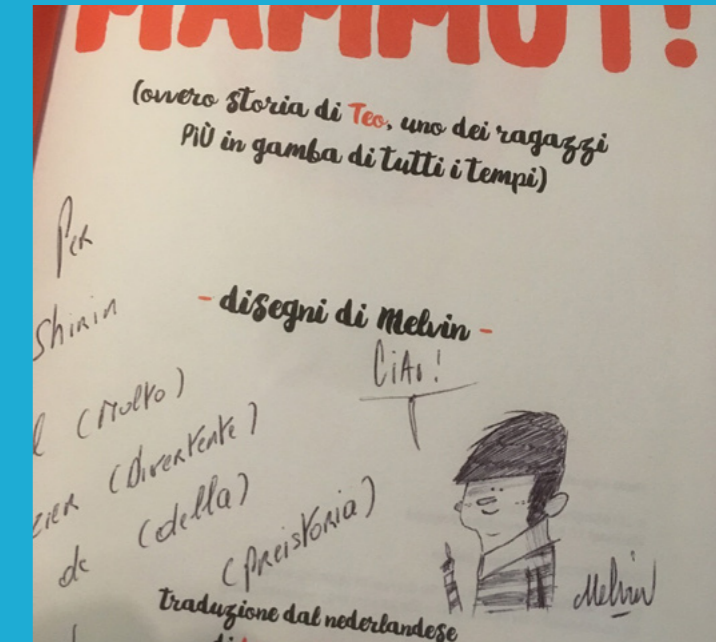 MAMMUT!
(ovvero storia di Teo, uno dei ragazzi
PIÙ in gamba di tutti i tempi)
Per
Shirin
- disegni di Melvin -
Ciao!
(Molto)
(Divertente)
de (della)
(Preistoria)
Melvin
traduzione dal nederlandese